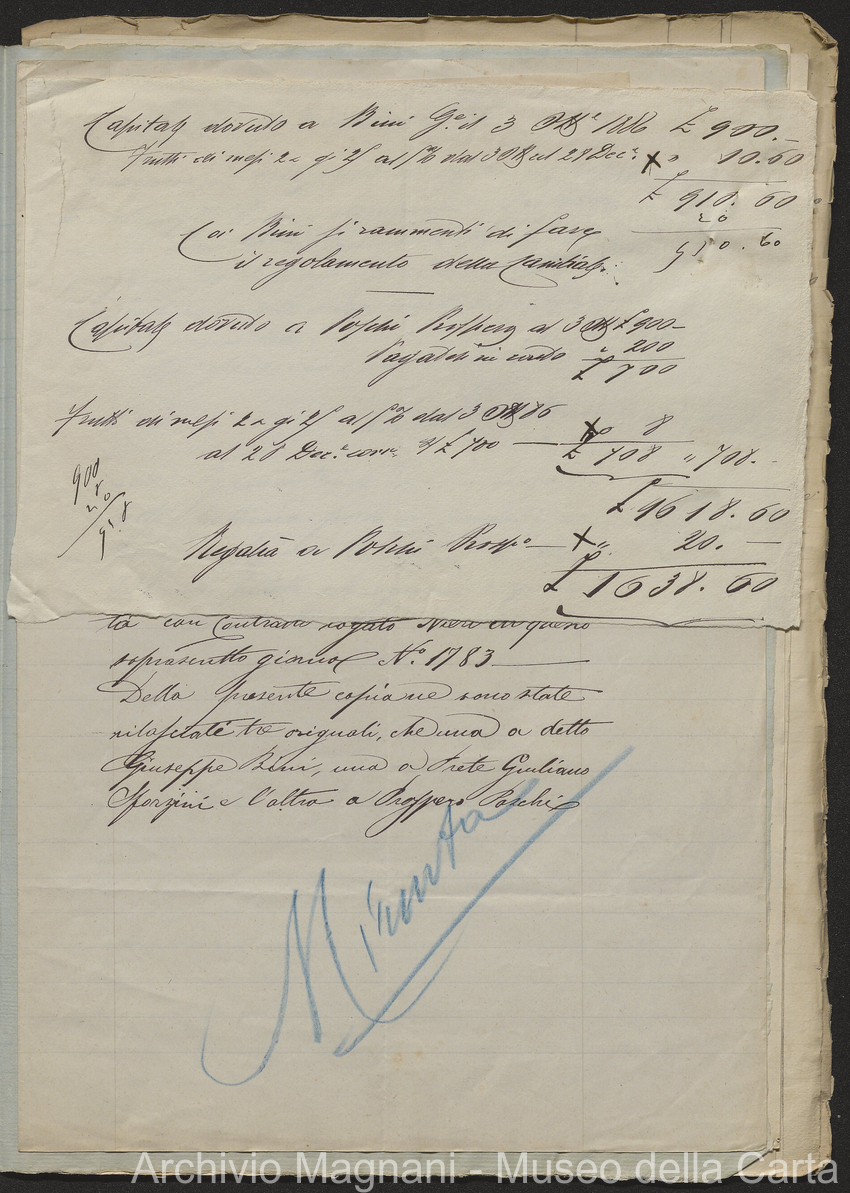 Capitale dovuto a Bini Ge. il 3 Obre 1886 £ 900.—
Frutti di mesi 2 e gi 25 al 5% dal 3 Obre al 28 Dece. X " 10.60
£ 910.60
20
930.60
Coi Bini si rammenti di fare
il regolamento della Cambiale.
Capitale dovuto a Poschi Prospero al 3 Obre £ 900—
Pagateli in conto " 200
£ 700
Frutti di mesi 2 e gi 25 al 5% dal 3 Obre 86
al 28 Dece. corre. s/ £ 700 — X " 8
£ 708 " 708.-
£ 1618.60
900
8
20
928
Regalia a Poschi Prospo — X " 20.—
£ 1638.60
ta con Contratto rogato Nieri in questo
soprascritto giorno No. 1783 —
Della presente copia ne sono state
rilasciate tre originali, che una a detto
Giuseppe Bini, una a Prete Giuliano
Sforzini e l'altra a Prospero Poschi
Minuta
Archivio Magnani - Museo della Carta